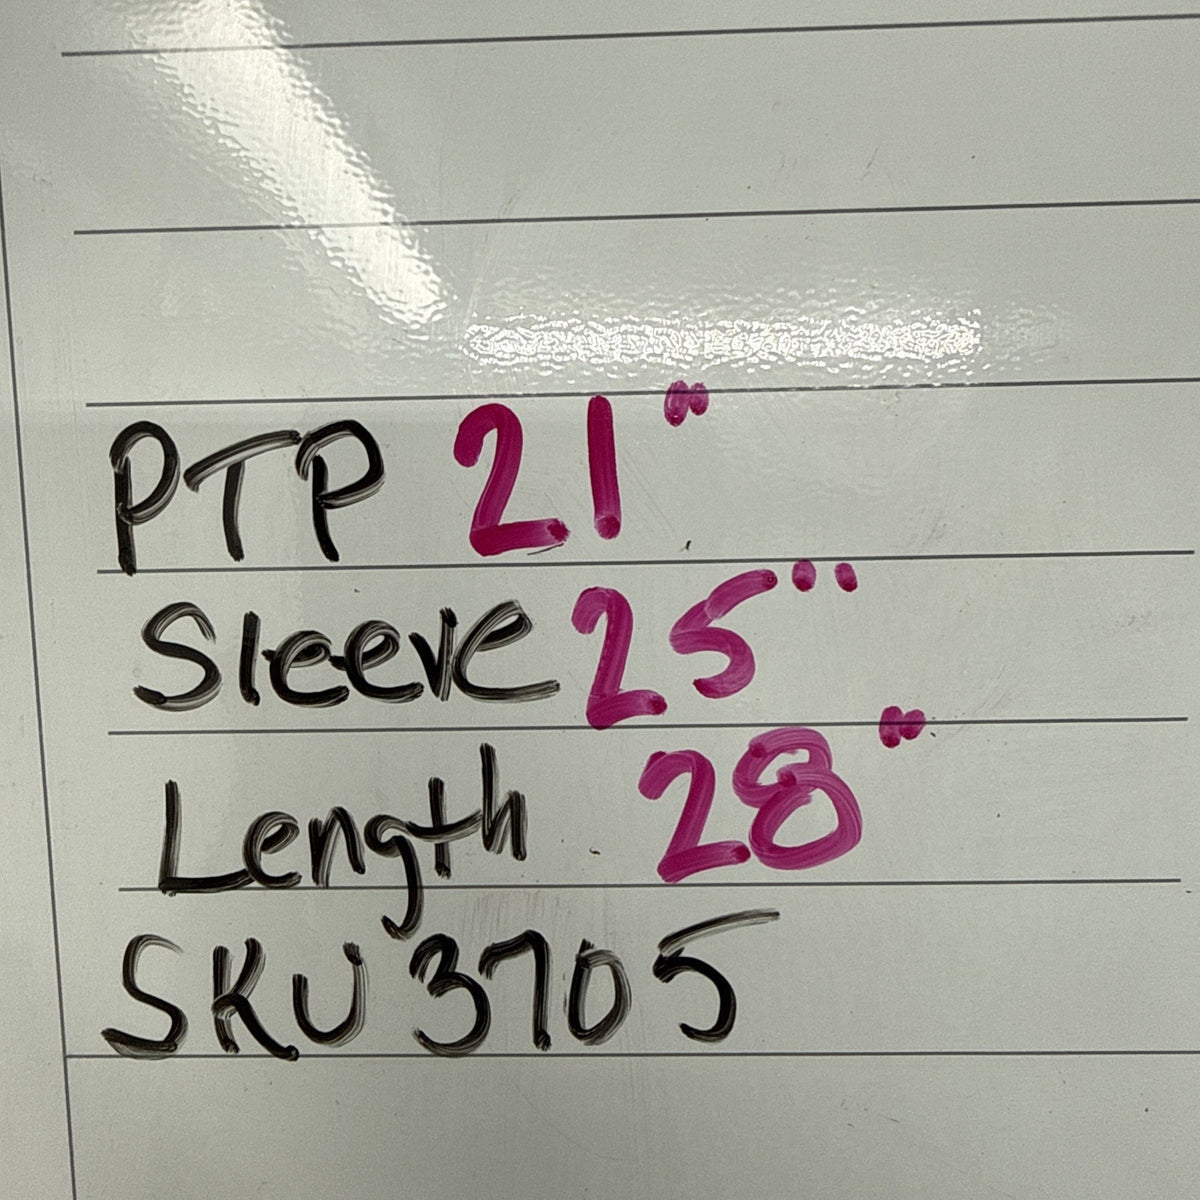 PTP 21"
Sleeve 25"
Length 28"
SKU 3705